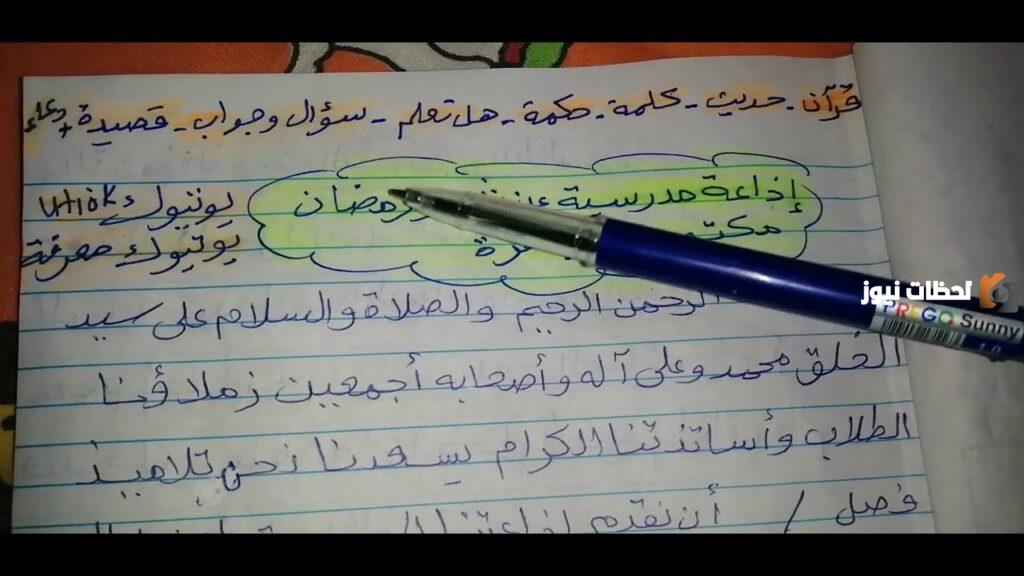 قرآن - حديث - كلمة - حكمة - هل تعلم - سؤال وجواب - قصيدة + دعاء
إذاعة مدرسية رمضان
يوتيوك
يوتيوك معرفة
الرحمن الرحيم والصلاة والسلام على سيد
الخلق محمد وعلى آله وأصحابه أجمعين زملاؤنا
الطلاب وأساتذتنا الكرام يسعدنا نحن تلاميذ
فصل / أن نقدم
لحظات نيوز
TREGO Sunny
1.0